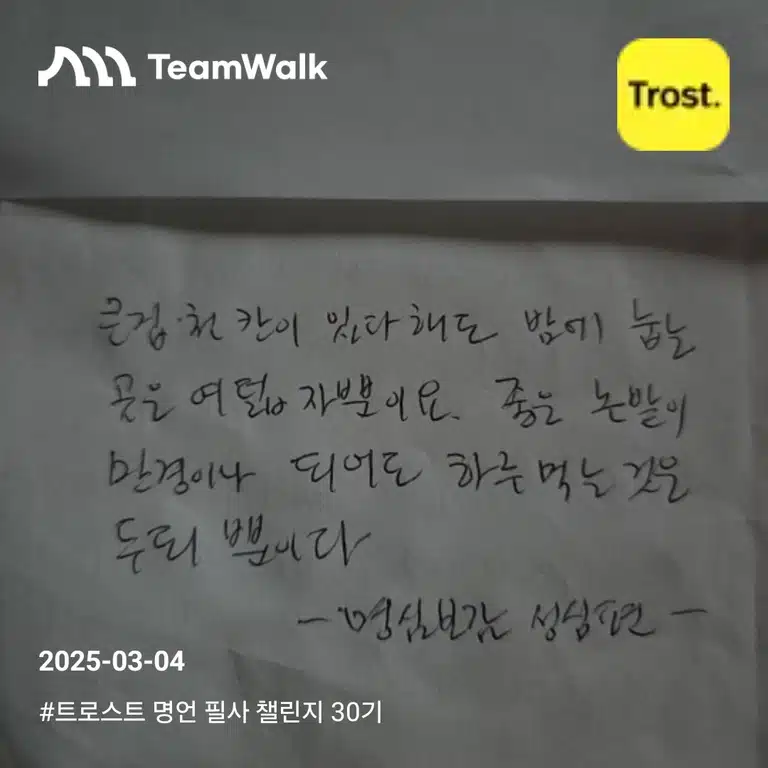 TeamWalk
Trost.
큰집 천 칸이 있다해도 밤에 눕는
곳은 여덟 자뿐이요. 좋은 논밭이
만경이나 되어도 하루 먹는 것은
두되 뿐이다
- 명심보감 성심편 -
2025-03-04
#트로스트 명언 필사 챌린지 30기